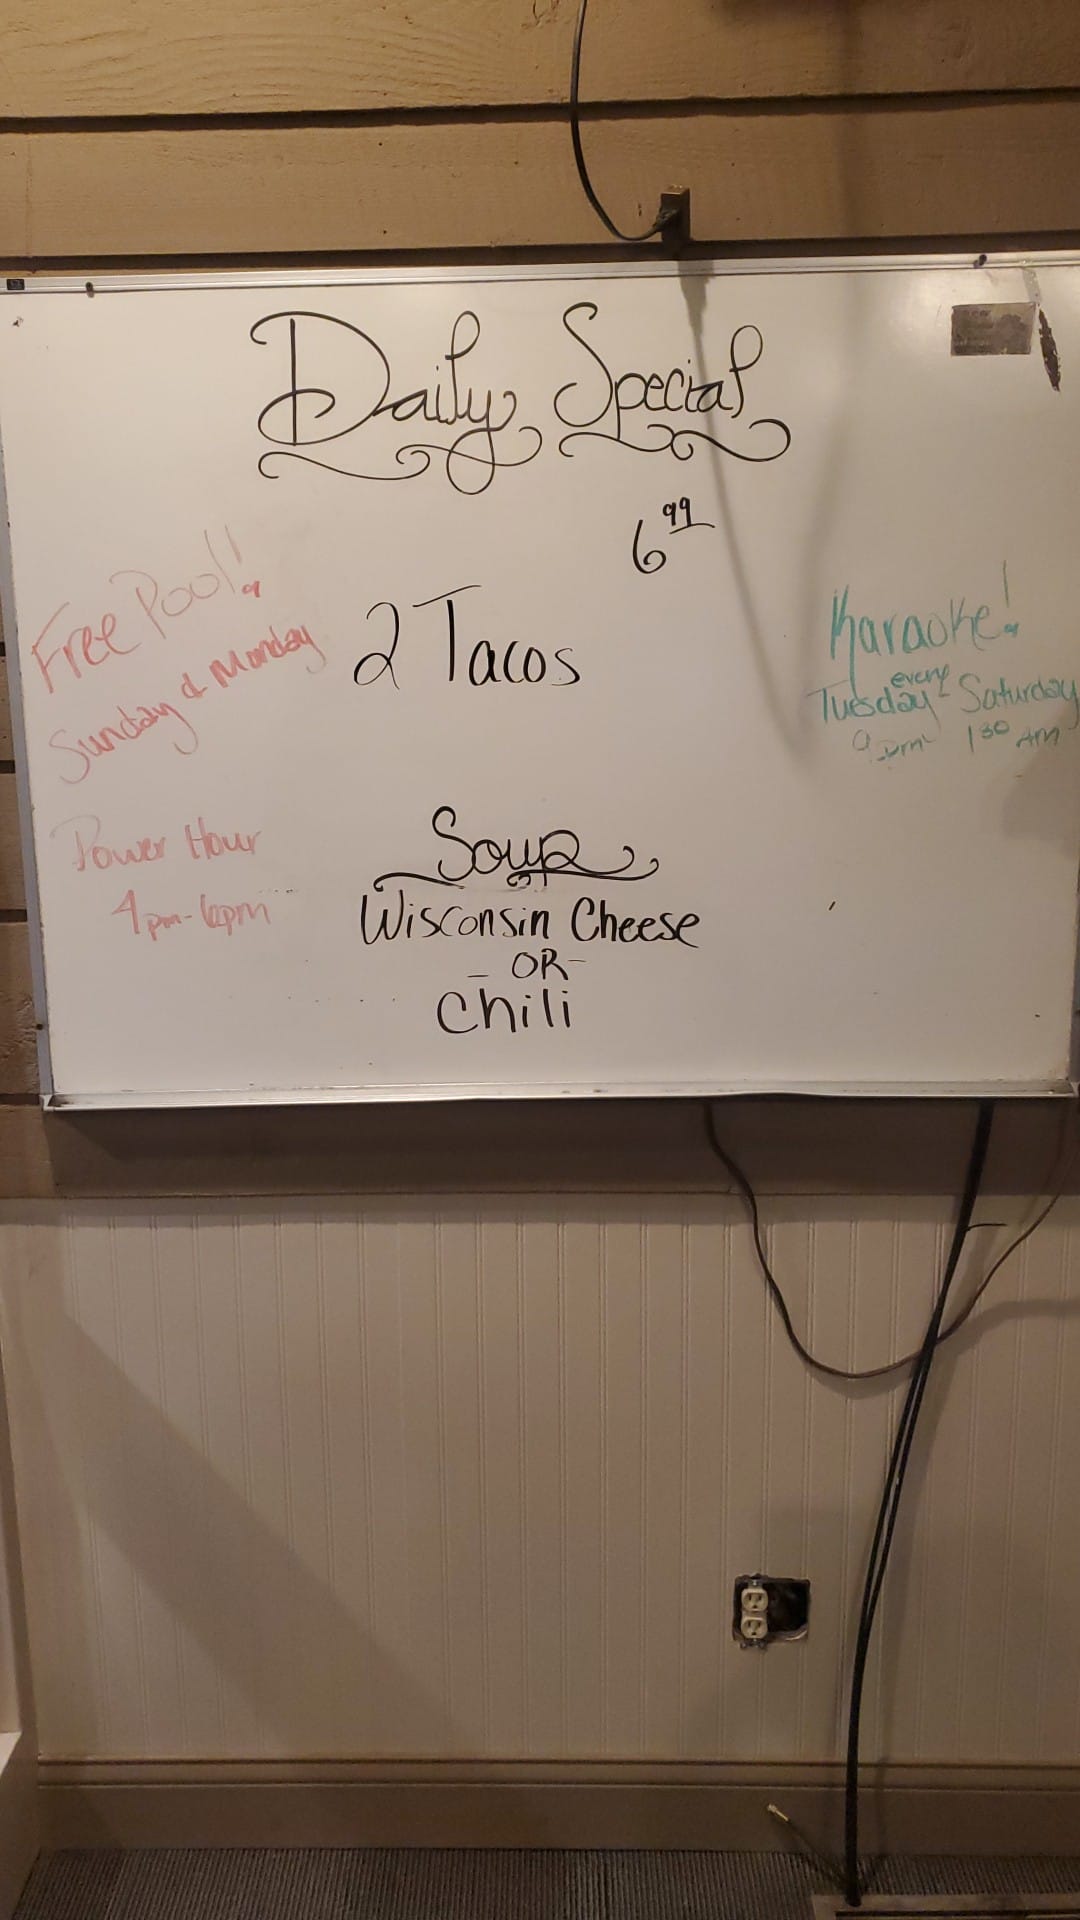 Daily Special
6 99
2 Tacos
Free Pool!
Sunday & Monday
Power Hour
4pm-6pm
Karaoke!
every
Tuesday - Saturday
9pm 1 30 AM
Soup
Wisconsin Cheese
- OR -
Chili